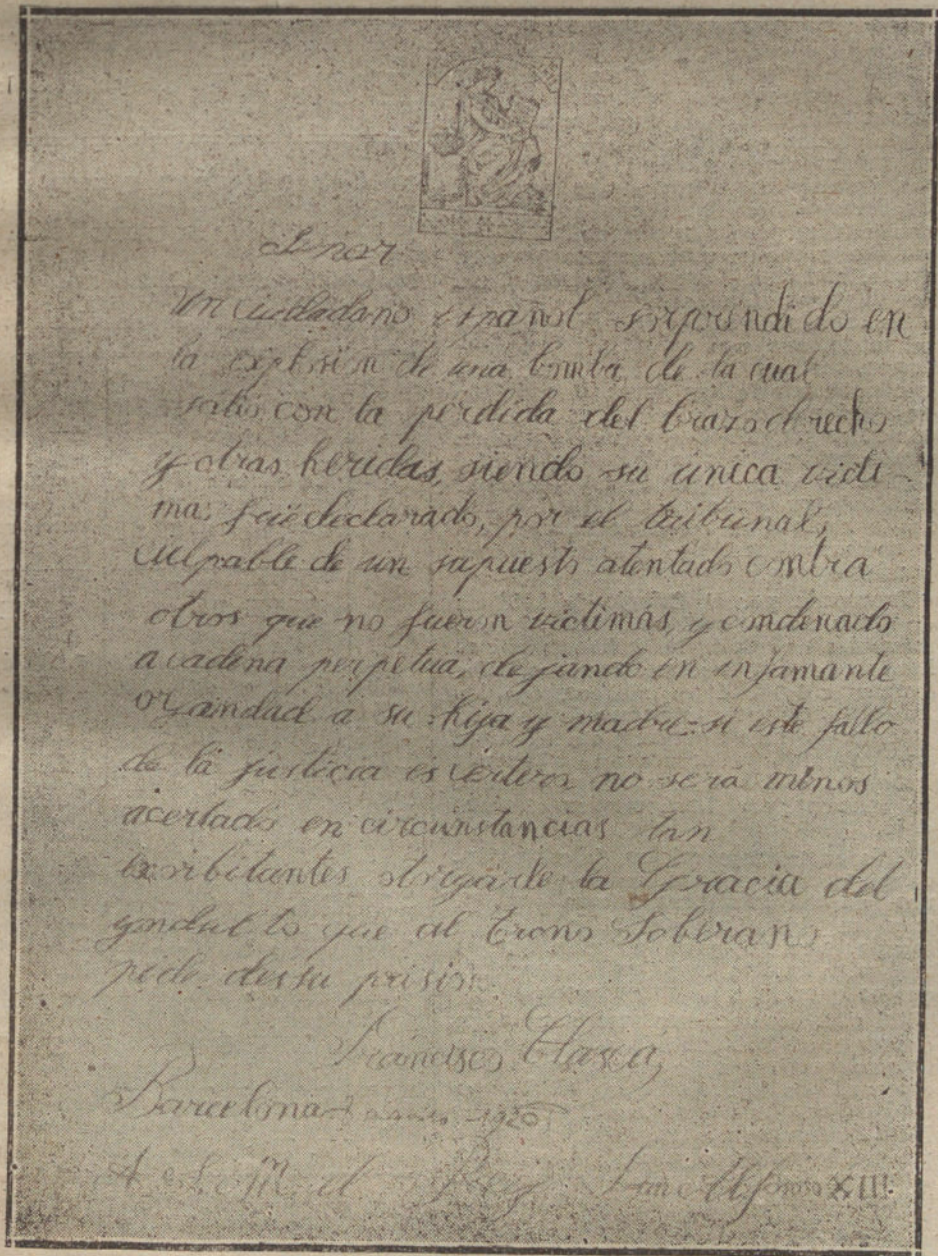 Señor
Un ciudadano español sorprendido en
la explosión de una bomba de la cual
salió con la perdida del brazo derecho
y otras heridas, siendo su unica victi-
ma, fué declarado, por el tribunal,
culpable de un supuesto atentado contra
otros que no fueron victimas, y condenado
a cadena perpetua, dejando en infamante
orfandad a su hija y madre = si este fallo
de la justicia es certero no será menos
acertado en circunstancias tan
exorbitantes la Gracia del
yndulto que al trono Soberano
pide su prisión
Francisco
Barcelona 1926
A S. M. el Rey Alfonso XIII